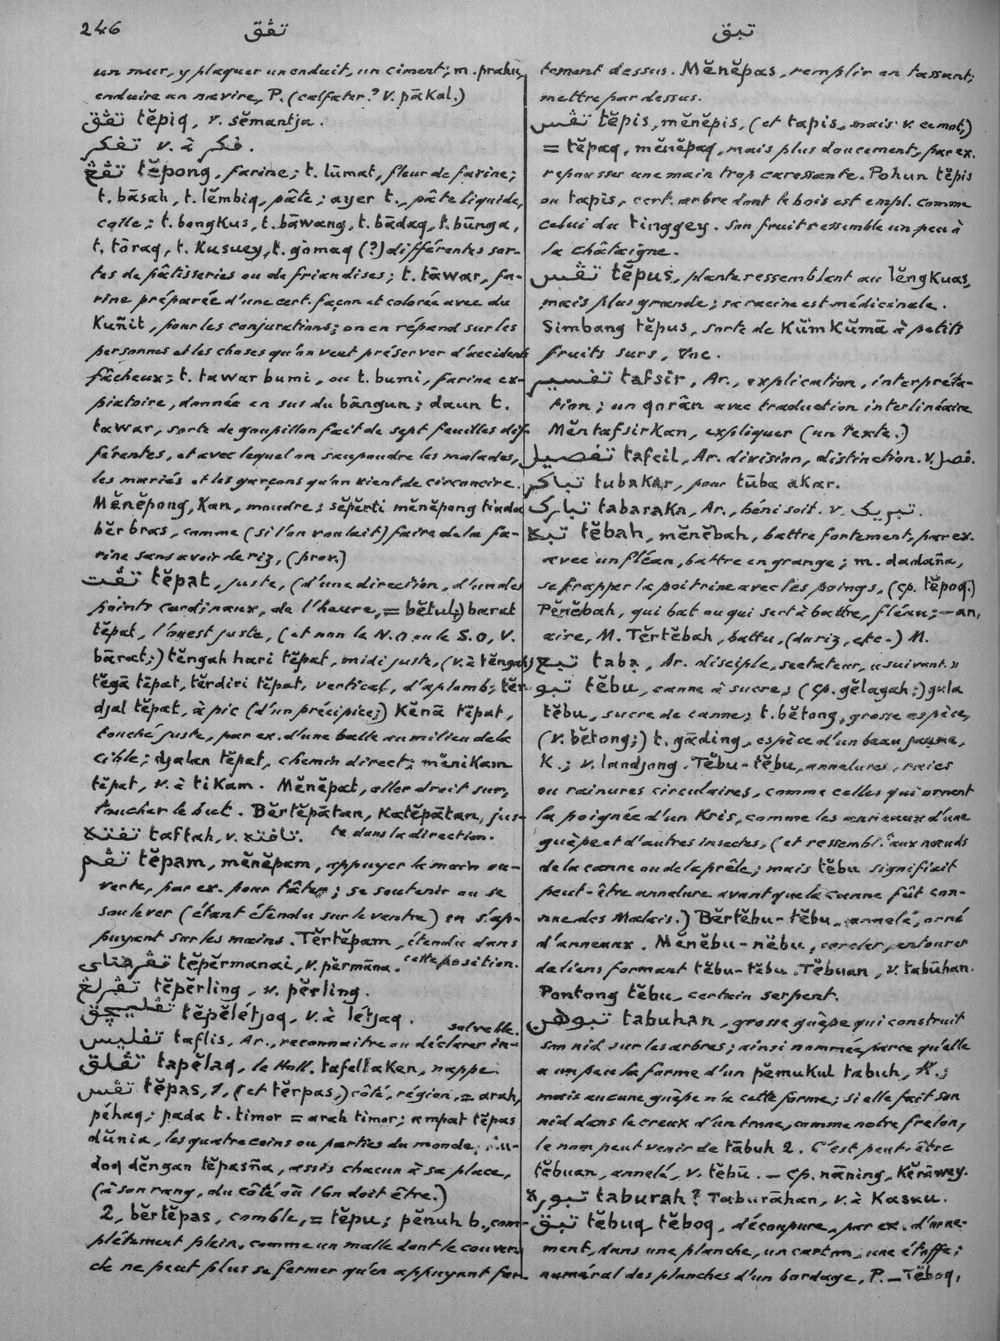 246 تڤق تبق
un mur, y plaquer un enduit, un ciment; m. prahu,
enduire un navire, P. (calfater? V. pākal.)
تڤق tĕpiq, v. sĕmantja.
تفكر v. à فكر.
تڤڠ tĕpong, farine; t. lūmat, fleur de farine;
t. bāsah, t. lĕmbiq, pâte; ayer t., pâte liquide,
colle; t. bongkus, t. bāwang, t. bādaq, t. būnga,
t. tōraq, t. kusuey, t. gòmaq (?) différentes sor-
tes de pâtisseries ou de friandises; t. tāwar, fa-
rine préparée d'une cert. façon et colorée avec du
Kuñit, pour les conjurations; on en répand sur les
personnes et les choses qu'on veut préserver d'accidents
fâcheux; t. tawar bumi, ou t. bumi, farine ex-
piatoire, donnée en sus du bāngun; daun t.
tawar, sorte de goupillon fait de sept feuilles dif-
férentes, et avec lequel on saupoudre les malades,
les mariés et les garçons qu'on vient de circoncire.
Mĕnĕpong, kan, moudre; sĕpĕrti mĕnĕpong tiada
bĕr bras, comme (si l'on voulait) faire de la fa-
rine sans avoir de riz, (prov.)
تڤت tĕpat, juste, (d'une direction, d'un des
points cardinaux, de l'heure, = bĕtul;) barat
tĕpat, l'ouest juste, (et non le N.O ou le S.O, V.
bārat;) tĕngah hari tĕpat, midi juste, (v. à tĕngah)
tĕgā tĕpat, tĕrdiri tĕpat, vertical, d'aplomb; tĕr-
djal tĕpat, à pic (d'un précipice;) Kĕnā tĕpat,
touché juste, par ex. d'une balle au milieu de la
cible; djalan tĕpat, chemin direct; mĕnikam
tĕpat, v. à tikam. Mĕnĕpat, aller droit sur,
toucher le but. Bĕrtĕpātan, Katĕpātan, jus-
te dans la direction.
تفته taftah, v. تافته.
تڤم tĕpam, mĕnĕpam, appuyer la main ou-
verte, par ex. pour tâter; se soutenir ou se
soulever (étant étendu sur le ventre) en s'ap-
puyant sur les mains. Tĕrtĕpam, étendu dans
cette position.
تڤرمناى tĕpĕrmanai, v. pĕrmāna.
تڤرلڠ tĕpĕrling, v. pĕrling.
تڤليچق tĕpĕlétjoq, v. à létjaq.
تفليس taflis, Ar., reconnaître ou déclarer in-
solvable.
تڤلق tapĕlaq, le Holl. tafellaken, nappe.
تڤس tĕpas, 1, (et tĕrpas,) côté, région, = arah,
péhaq; pada t. timor = arah timor; ampat tĕpas
dūnia, les quatre coins ou parties du monde; du-
doq dĕngan tĕpasña, assis chacun à sa place,
(à son rang, du côté où l'on doit être.)
2, bĕrtĕpas, comble, = tĕpu; pĕnuh b., com-
plètement plein, comme un malle dont le couver-
cle ne peut plus se fermer qu'en appuyant for-
tement dessus. Mĕnĕpas, remplir en tassant;
mettre par dessus.
تڤس tĕpis, mĕnĕpis, (et tapis, mais v. ce mot,)
= tĕpaq, mĕnĕpaq, mais plus doucement, par ex.
repousser une main trop caressante. Pohun tĕpis
ou tapis, cert. arbre dont le bois est empl. comme
celui du tinggey. Son fruit ressemble un peu à
la châtaigne.
تڤس tĕpus, plante ressemblant au lĕngkuas,
mais plus grande; sa racine est médicinale.
Simbang tĕpus, sorte de Kŭmkŭmā à petits
fruits surs, Vnc.
تفسير tafsir, Ar., explication, interpréta-
tion; un qorân avec traduction interlinéaire
Mĕntafsirkan, expliquer (un texte.)
تفصيل tafcil, Ar. division, distinction. v. فصل.
تباكر tubakar, pour tūba akar.
تبارك tabaraka, Ar., béni soit. v. تبريك.
تبه tĕbah, mĕnĕbah, battre fortement, par ex.
avec un fléau, battre en grange; m. dadaña,
se frapper la poitrine avec les poings, (cp. tĕpoq.)
Pĕnĕbah, qui bat ou qui sert à battre, fléau; —an,
aire, M. Tĕrtĕbah, battu, (du riz, etc.) M.
تبع taba, Ar. disciple, sectateur, «suivant.»
تبو tĕbu, canne à sucre; (cp. gĕlagah;) gula
tĕbu, sucre de canne; t. bĕtong, grosse espèce,
(v. bĕtong;) t. gāding, espèce d'un beau jaune,
K.; v. landjong. Tĕbu-tĕbu, annelures, raies
ou rainures circulaires, comme celles qui ornent
la poignée d'un kris, comme les anneaux d'une
guêpe et d'autres insectes, (et ressembl.t aux nœuds
de la canne ou de la prêle; mais tĕbu signifiait
peut-être annelure avant que la canne fût con-
nue des Malais.) Bĕrtĕbu-tĕbu, annelé, orné
d'anneaux. Mĕnĕbu-nĕbu, cercler, entourer
de liens formant tĕbu-tĕbu. Tĕbuan, v. tabūhan.
Pontong tĕbu, certain serpent.
تبوهن tabuhan, grosse guêpe qui construit
son nid sur les arbres; ainsi nommée parce qu'elle
a un peu la forme d'un pĕmukul tabuh, K.;
mais aucune guêpe n'a cette forme; si elle fait son
nid dans le creux d'un tronc, comme notre frelon,
le nom peut venir de tābuh 2. C'est peut-être
tĕbuan, annelé, v. tĕbū. — Cp. nāning, Kĕrāwey.
تبوره taburah? Taburāhan, v. à Kasau.
تبق tĕbuq tĕboq, découpure, par ex. d'orne-
ment, dans une planche, un carton, une étoffe;
numéral des planches d'un bordage, P. — Tĕboq,